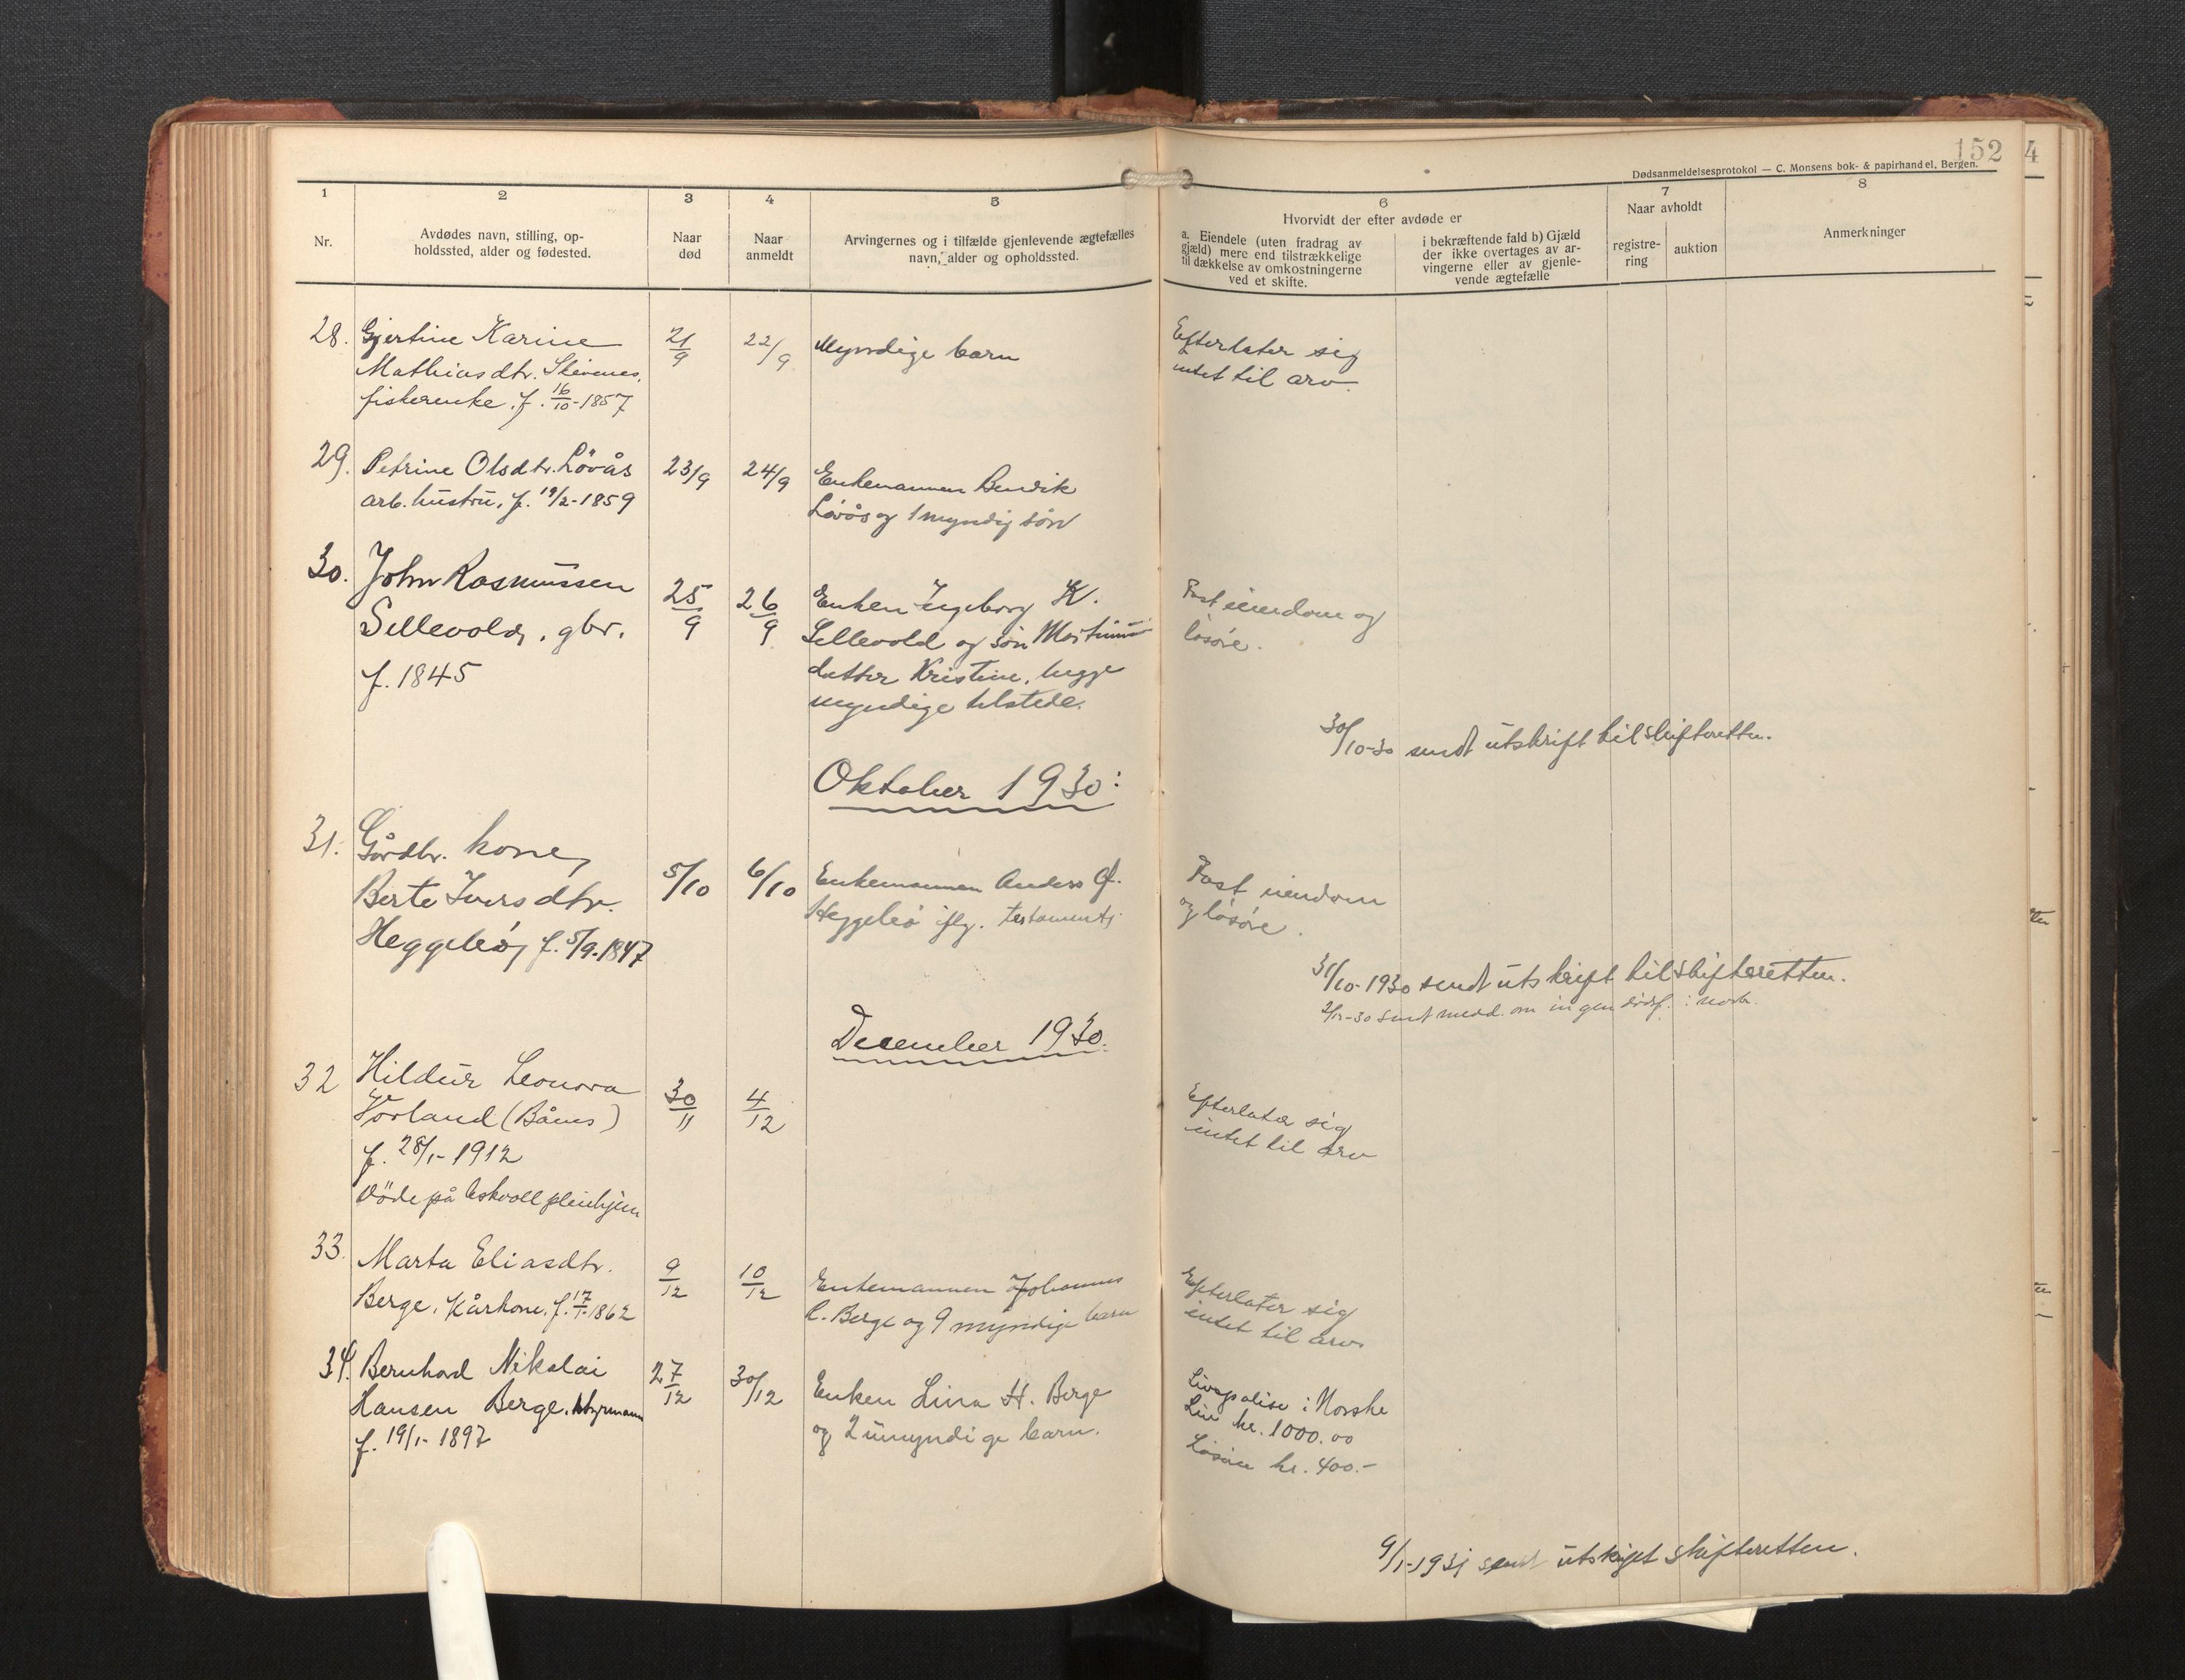 152
4
Dødsanmeldelsesprotokol — C. Monsens bok- & papirhandel, Bergen.
1
2
3
4
5
6
7
8
Nr.
Avdødes navn, stilling, op-
holdssted, alder og fødested.
Naar
død
Naar
anmeldt
Arvingernes og i tilfælde gjenlevende ægtefælles
navn, alder og opholdssted.
Hvorvidt der efter avdøde er
a. Eiendele (uten fradrag av
gjæld) mere end tilstrækkelige
til dækkelse av omkostningerne
ved et skifte.
i bekræftende fald b) Gjæld
der ikke overtages av ar-
vingerne eller av gjenle-
vende ægtefælle
Naar avholdt
registre-
ring
auktion
Anmerkninger
28. Gjertine Karine
Mathiasdtr. Skivenes,
fiskerenke, f. 16/10-1857
21/9
22/9
Myndige barn
Efterlater sig
intet til arv.
29. Petrine Olsdtr. Lövås
arb. hustru, f. 19/2-1859
23/9
24/9
Enkemannen Bendik
Lövås og 1 myndig sön
30. John Rasmussen
Sellevold, gbr.
f. 1845
25/9
26/9
Enken Ingeborg K.
Sellevold og sön
datter Kristine, begge
myndige tilstede.
Fast eiendom og
lösöre.
30/10-30 sendt utskrift til skifteretten.
Oktober 1930:
31. Gårdbr. kone,
Berte Iversdtr.
Heggelö, f. 5/9-1847
5/10
6/10
Enkemannen Anders Ø.
Heggelö iflg. testament
Fast eiendom
og lösöre.
31/10-1930 sendt utskrift til skifteretten.
2/12-30 sendt medd. om ingen
December 1930.
32 Hildur Leonora
Vorland (Båns)
f. 28/1-1912
Döde på Askvoll pleiehjem
30/11
4/12
Efterlater sig
intet til arv
33. Marta Eliasdtr.
Berge, kårkone, f. 17/1-1862
9/12
10/12
Enkemannen Johannes
C. Berge og 9 myndige barn
Efterlater sig
intet til arv
34. Bernhard Nikolai
Hansen Berge, styrmann
f. 19/1-1897
27/12
30/12
Enken Lina H. Berge
og 2 umyndige barn.
Livspolise i Norske
Liv kr. 1000.00
Lösöre kr. 400.-
9/1-1931 sendt utskrift skifteretten.